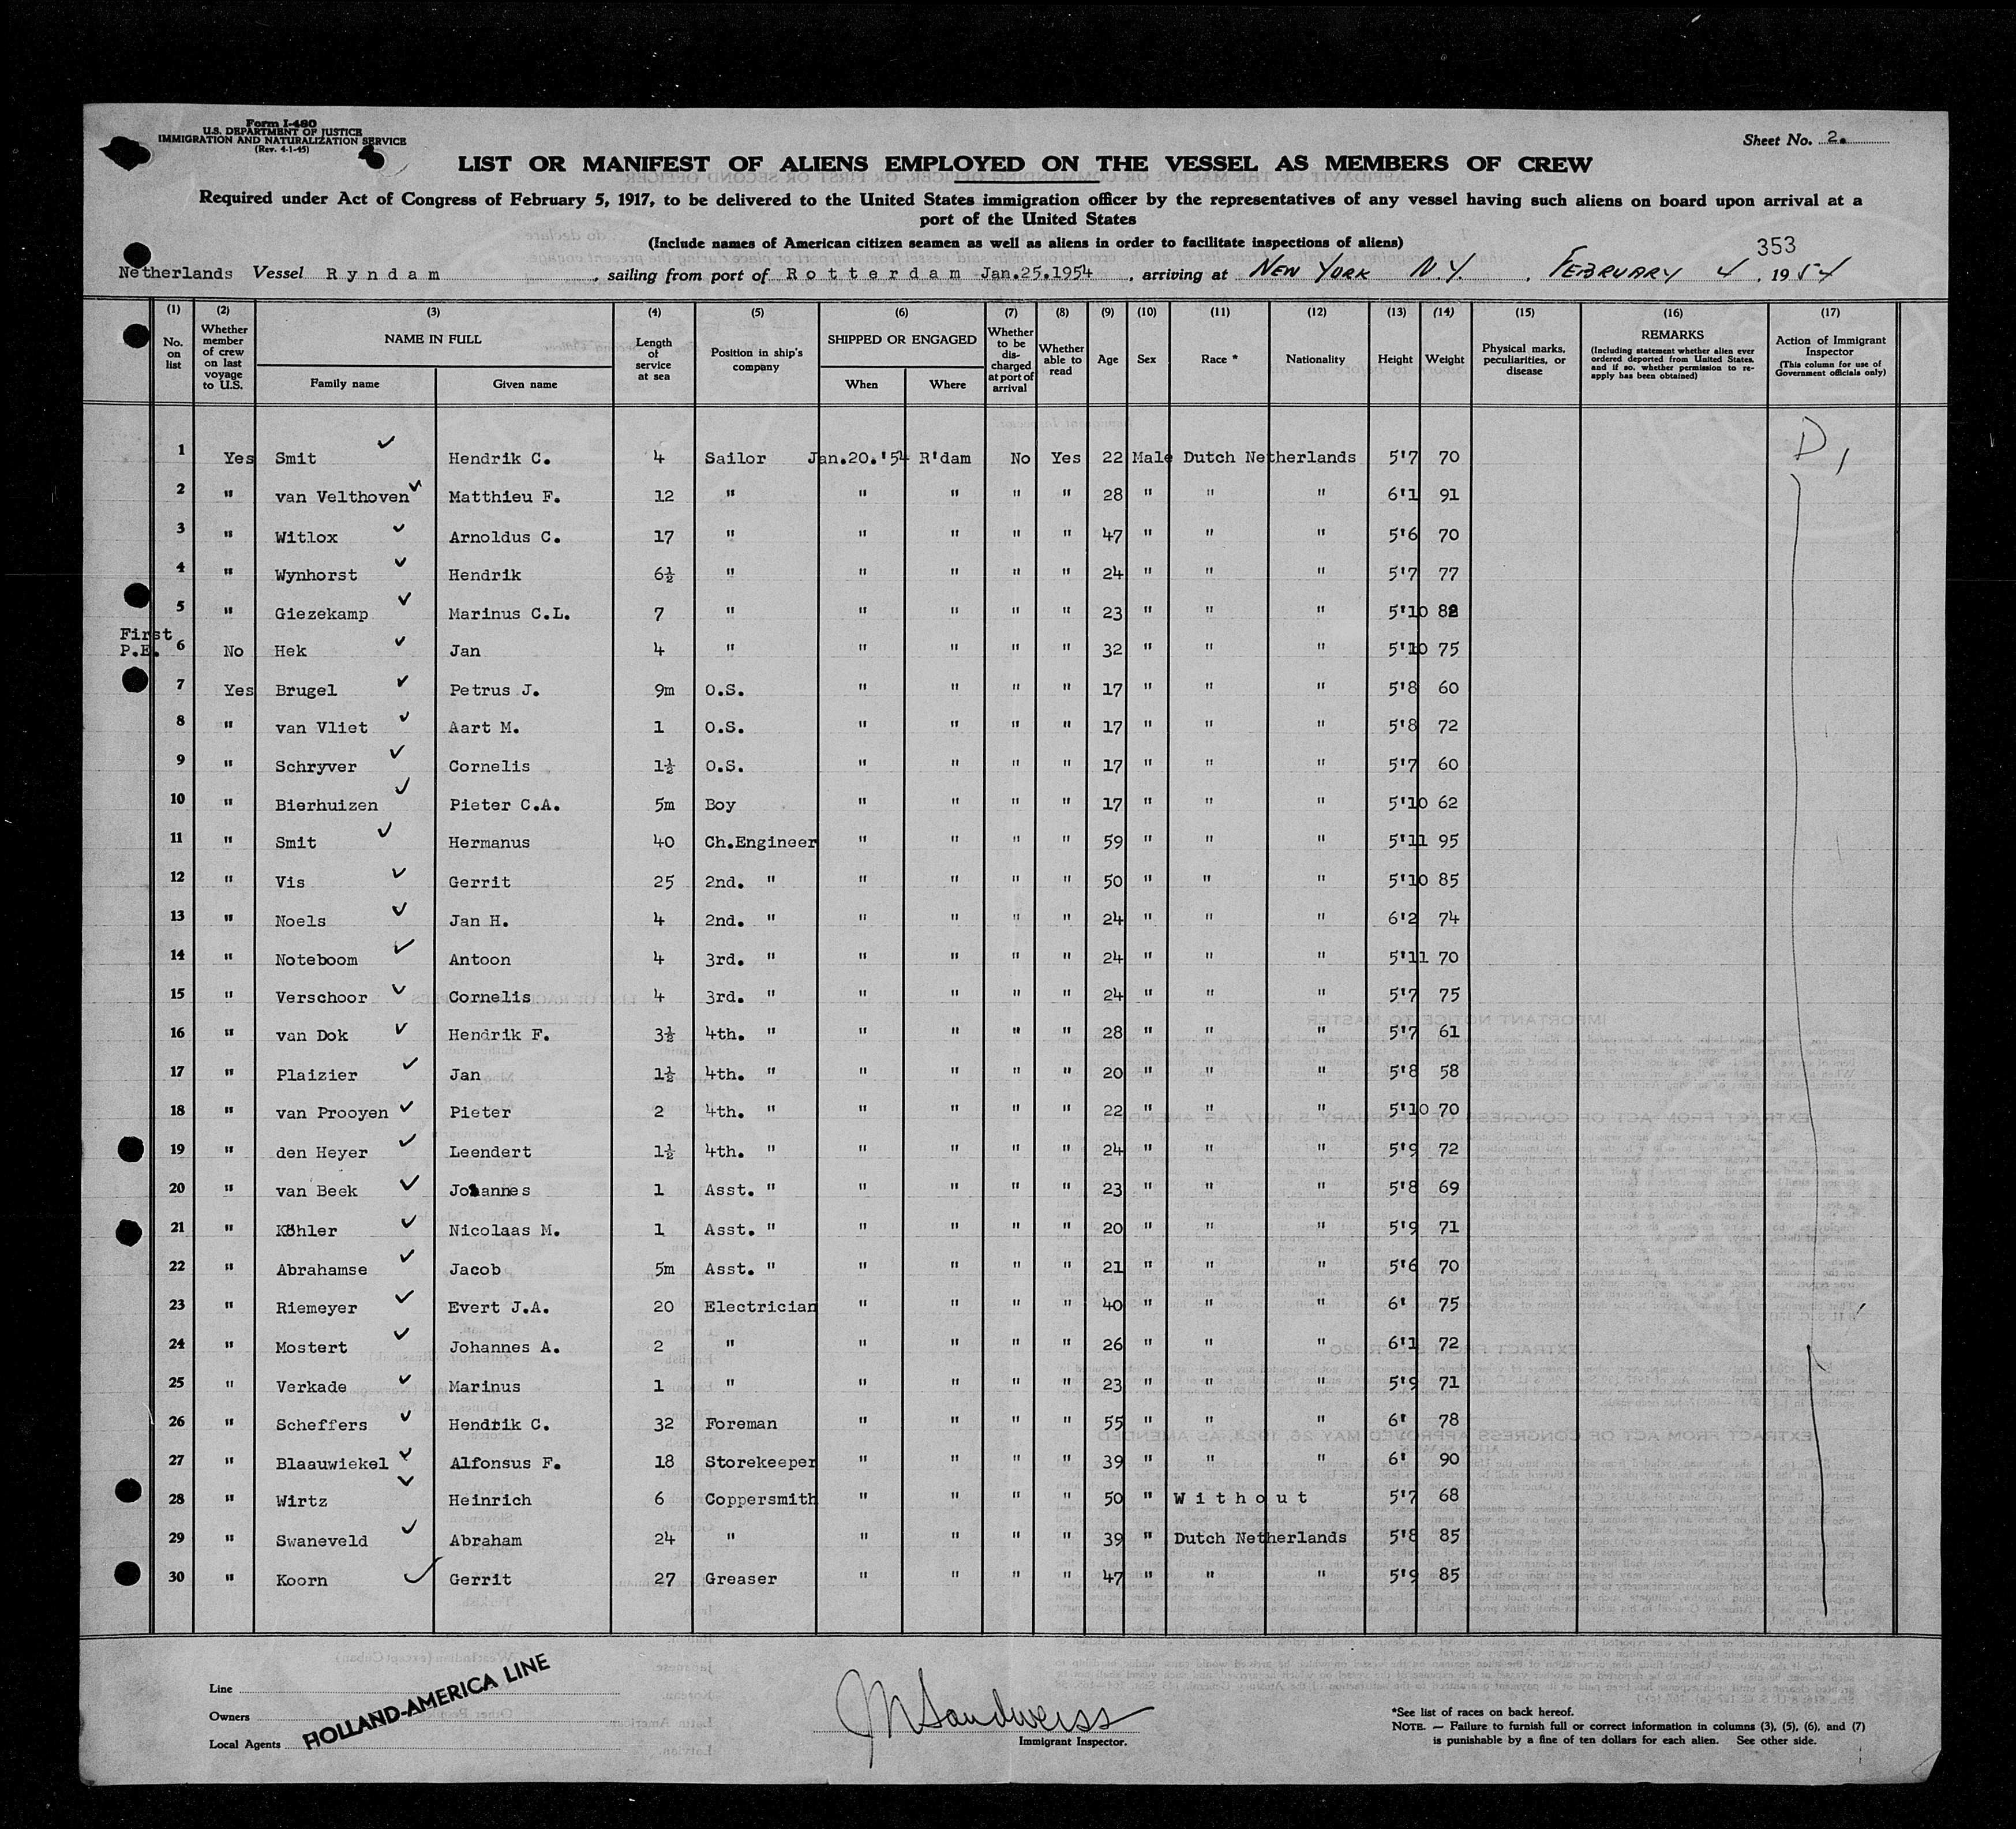 Form I-480
U.S. DEPARTMENT OF JUSTICE
IMMIGRATION AND NATURALIZATION SERVICE
(Rev. 4-1-45)
Sheet No. 2.
LIST OR MANIFEST OF ALIENS EMPLOYED ON THE VESSEL AS MEMBERS OF CREW
Required under Act of Congress of February 5, 1917, to be delivered to the United States immigration officer by the representatives of any vessel having such aliens on board upon arrival at a
port of the United States
(Include names of American citizen seamen as well as aliens in order to facilitate inspections of aliens)
353
Netherlands Vessel Ryndam, sailing from port of Rotterdam Jan.25.1954, arriving at NEW YORK N.Y., FEBRUARY 4, 1954
(1) (2) (3) (4) (5) (6) (7) (8) (9) (10) (11) (12) (13) (14) (15) (16) (17)
No. on list
Whether member of crew on last voyage to U.S.
NAME IN FULL
Family name
Given name
Length of service at sea
Position in ship's company
SHIPPED OR ENGAGED
When
Where
Whether to be discharged at port of arrival
Whether able to read
Age
Sex
Race *
Nationality
Height
Weight
Physical marks, peculiarities, or disease
REMARKS
(Including statement whether alien ever ordered deported from United States, and if so, whether permission to reapply has been obtained)
Action of Immigrant Inspector
(This column for use of Government officials only)
D,
1 Yes Smit ✓ Hendrik C. 4 Sailor Jan.20.'54 R'dam No Yes 22 Male Dutch Netherlands 5'7 70
2 " van Velthoven ✓ Matthieu F. 12 " " " " " 28 " " " 6'1 91
3 " Witlox ✓ Arnoldus C. 17 " " " " " 47 " " " 5'6 70
4 " Wynhorst ✓ Hendrik 6½ " " " " " 24 " " " 5'7 77
5 " Giezekamp ✓ Marinus C.L. 7 " " " " " 23 " " " 5'10 82
First
P.E. 6 No Hek ✓ Jan 4 " " " " " 32 " " " 5'10 75
7 Yes Brugel ✓ Petrus J. 9m O.S. " " " " 17 " " " 5'8 60
8 " van Vliet ✓ Aart M. 1 O.S. " " " " 17 " " " 5'8 72
9 " Schryver ✓ Cornelis 1½ O.S. " " " " 17 " " " 5'7 60
10 " Bierhuizen ✓ Pieter C.A. 5m Boy " " " " 17 " " " 5'10 62
11 " Smit ✓ Hermanus 40 Ch.Engineer " " " " 59 " " " 5'11 95
12 " Vis ✓ Gerrit 25 2nd. " " " " " 50 " " " 5'10 85
13 " Noels ✓ Jan H. 4 2nd. " " " " " 24 " " " 6'2 74
14 " Noteboom ✓ Antoon 4 3rd. " " " " " 24 " " " 5'11 70
15 " Verschoor ✓ Cornelis 4 3rd. " " " " " 24 " " " 5'7 75
16 " van Dok ✓ Hendrik F. 3½ 4th. " " " " " 28 " " " 5'7 61
17 " Plaizier ✓ Jan 1½ 4th. " " " " " 20 " " " 5'8 58
18 " van Prooyen ✓ Pieter 2 4th. " " " " " 22 " " " 5'10 70
19 " den Heyer ✓ Leendert 1½ 4th. " " " " " 24 " " " 5'9 72
20 " van Beek ✓ Johannes 1 Asst. " " " " " 23 " " " 5'8 69
21 " Köhler ✓ Nicolaas M. 1 Asst. " " " " " 20 " " " 5'9 71
22 " Abrahamse ✓ Jacob 5m Asst. " " " " " 21 " " " 5'6 70
23 " Riemeyer ✓ Evert J.A. 20 Electrician " " " " 40 " " " 6' 75
24 " Mostert ✓ Johannes A. 2 " " " " " 26 " " " 6'1 72
25 " Verkade ✓ Marinus 1 " " " " " 23 " " " 5'9 71
26 " Scheffers ✓ Hendrik C. 32 Foreman " " " " 55 " " " 6' 78
27 " Blaauwiekel ✓ Alfonsus F. 18 Storekeeper " " " " 39 " " " 6' 90
28 " Wirtz ✓ Heinrich 6 Coppersmith " " " " 50 " Without 5'7 68
29 " Swaneveld ✓ Abraham 24 " " " " " 39 " Dutch Netherlands 5'8 85
30 " Koorn ✓ Gerrit 27 Greaser " " " " 47 " " " 5'9 85
Line
Owners
Local Agents
HOLLAND-AMERICA LINE
JM Sandweiss
Immigrant Inspector.
*See list of races on back hereof.
NOTE. — Failure to furnish full or correct information in columns (3), (5), (6), and (7)
is punishable by a fine of ten dollars for each alien. See other side.